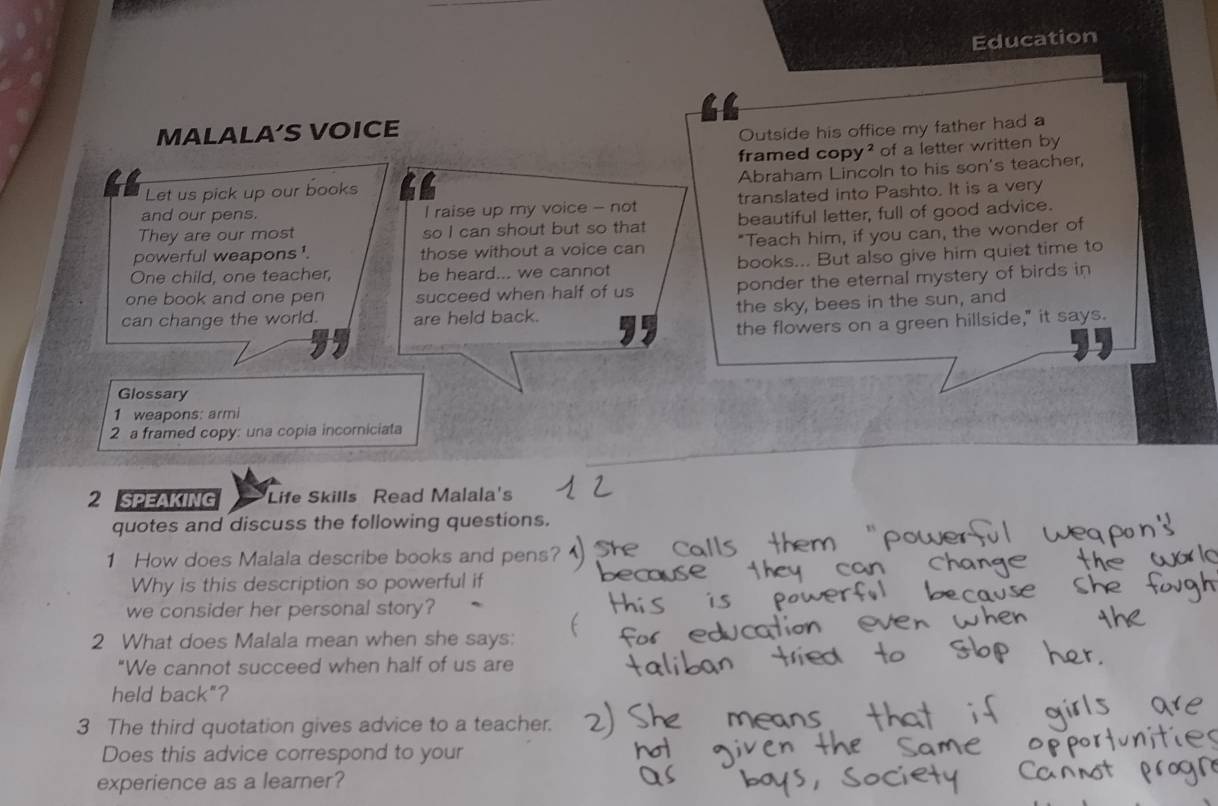 Education
MALALA'S VOICE
Let us pick up our books
and our pens.
They are our most
powerful weapons¹.
One child, one teacher,
one book and one pen
can change the world.
I raise up my voice – not
so I can shout but so that
those without a voice can
be heard... we cannot
succeed when half of us
are held back.
Outside his office my father had a
framed copy² of a letter written by
Abraham Lincoln to his son's teacher,
translated into Pashto. It is a very
beautiful letter, full of good advice.
"Teach him, if you can, the wonder of
books... But also give him quiet time to
ponder the eternal mystery of birds in
the sky, bees in the sun, and
the flowers on a green hillside," it says.
Glossary
1 weapons: armi
2 a framed copy: una copia incorniciata
2 SPEAKING Life Skills Read Malala's
quotes and discuss the following questions.
1 How does Malala describe books and pens?
Why is this description so powerful if
we consider her personal story?
2 What does Malala mean when she says:
"We cannot succeed when half of us are
held back"?
3 The third quotation gives advice to a teacher.
Does this advice correspond to your
experience as a learner?
12
1) She calls them "powerful weapon's
because they can change the worl
this is powerful because she fough
for education even when the
taliban tried to stop her.
2) She means that if girls are
not given the same opportunities
as boys, society cannot progre